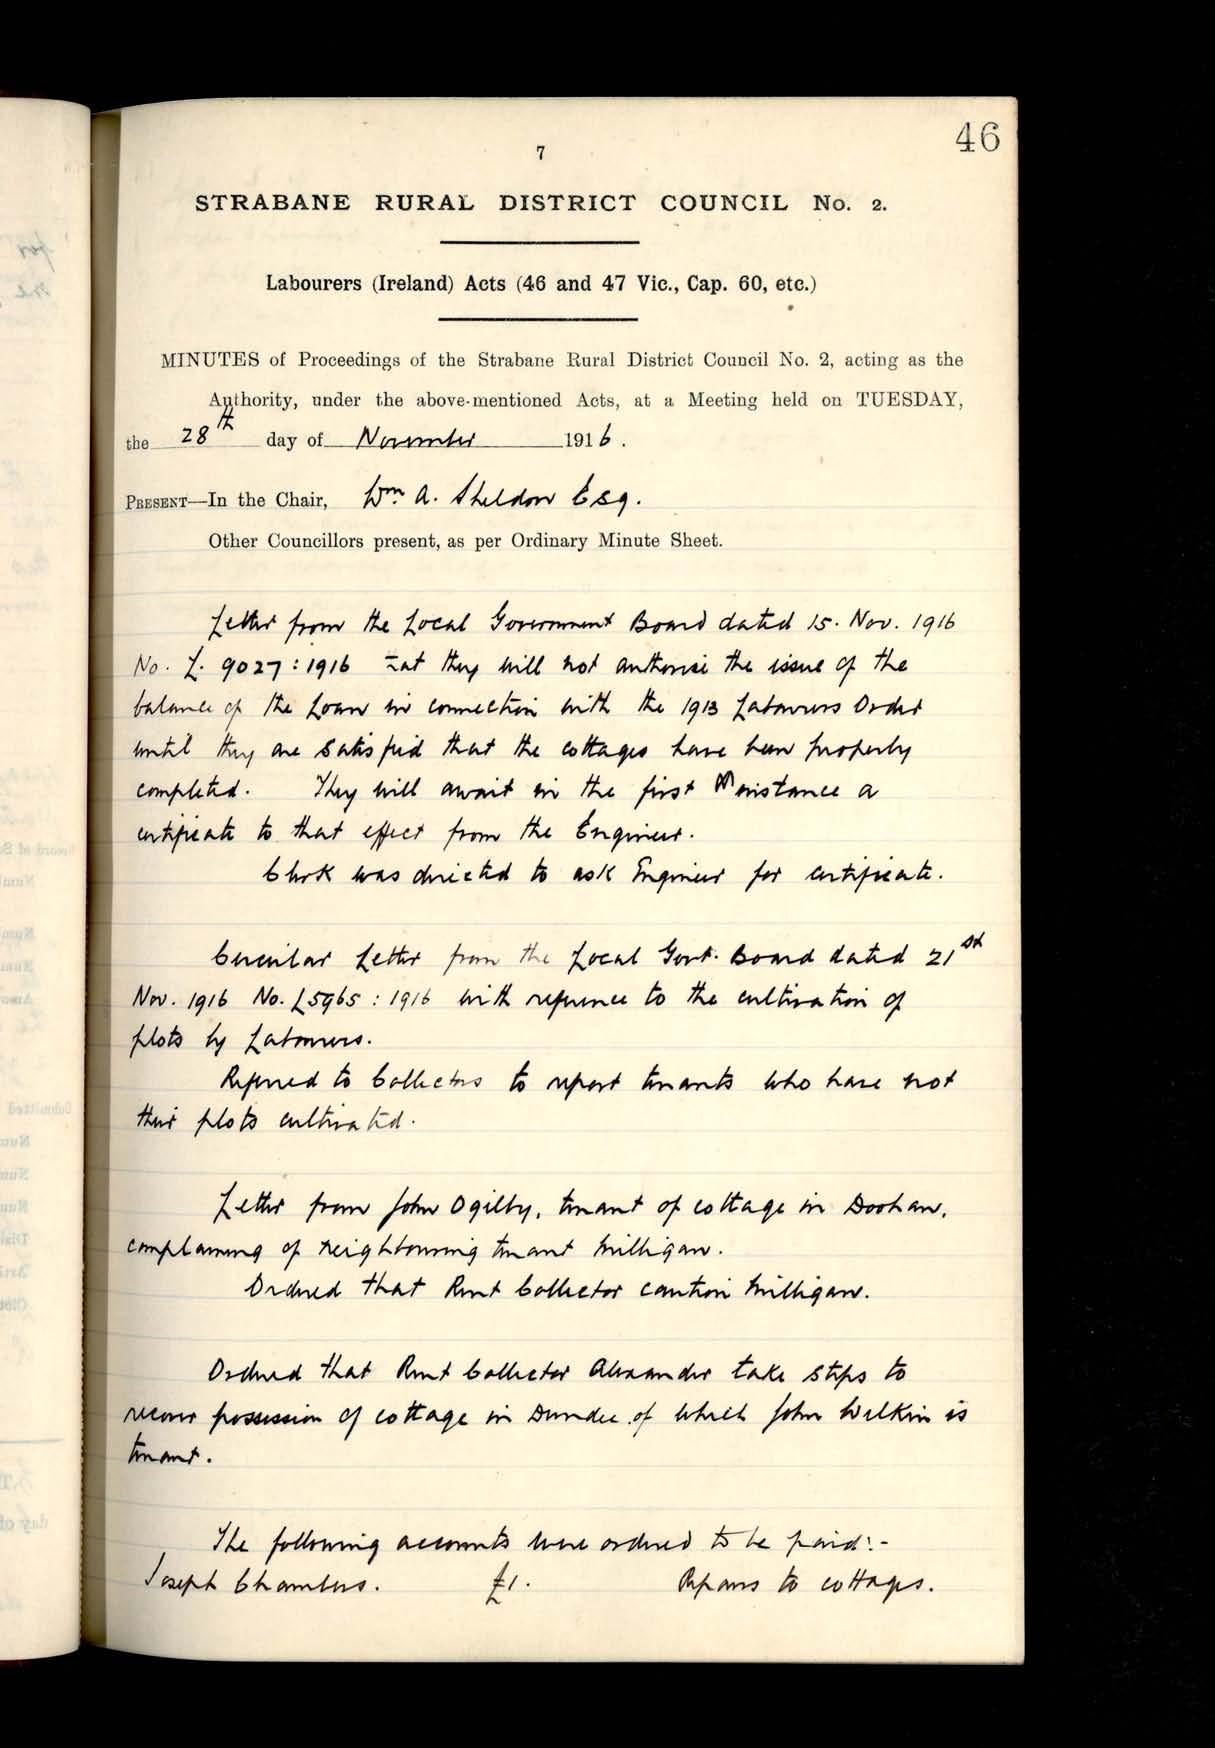 46
7
STRABANE RURAL DISTRICT COUNCIL No. 2.
Labourers (Ireland) Acts (46 and 47 Vic., Cap. 60, etc.)
MINUTES of Proceedings of the Strabane Rural District Council No. 2, acting as the
Authority, under the above-mentioned Acts, at a Meeting held on TUESDAY,
the 28th day of November 1916.
PRESENT—In the Chair, Wm. A. Sheldon Esq.
Other Councillors present, as per Ordinary Minute Sheet.
Letter from the Local Government Board dated 15. Nov. 1916
No. L. 9027:1916 that they will not authorise the issue of the
balance of the Loan in connection with the 1913 Labourers Order
until they are satisfied that the cottages have been properly
completed. They will await in the first instance a
certificate to that effect from the Engineer.
Clerk was directed to ask Engineer for certificate.
Circular Letter from the Local Govt. Board dated 21st
Nov. 1916 No. L5965:1916 with reference to the cultivation of
plots by Labourers.
Referred to Collectors to report tenants who have not
their plots cultivated.
Letter from John Ogilby, tenant of cottage in Doohan,
complaining of neighbouring tenant Milligan.
Ordered that Rent Collector caution Milligan.
Ordered that Rent Collector Alexander take steps to
recover possession of cottage in Dundee of which John Wilkin is
tenant.
The following accounts were ordered to be paid:-
Joseph Chambers. £1. Repairs to cottages.